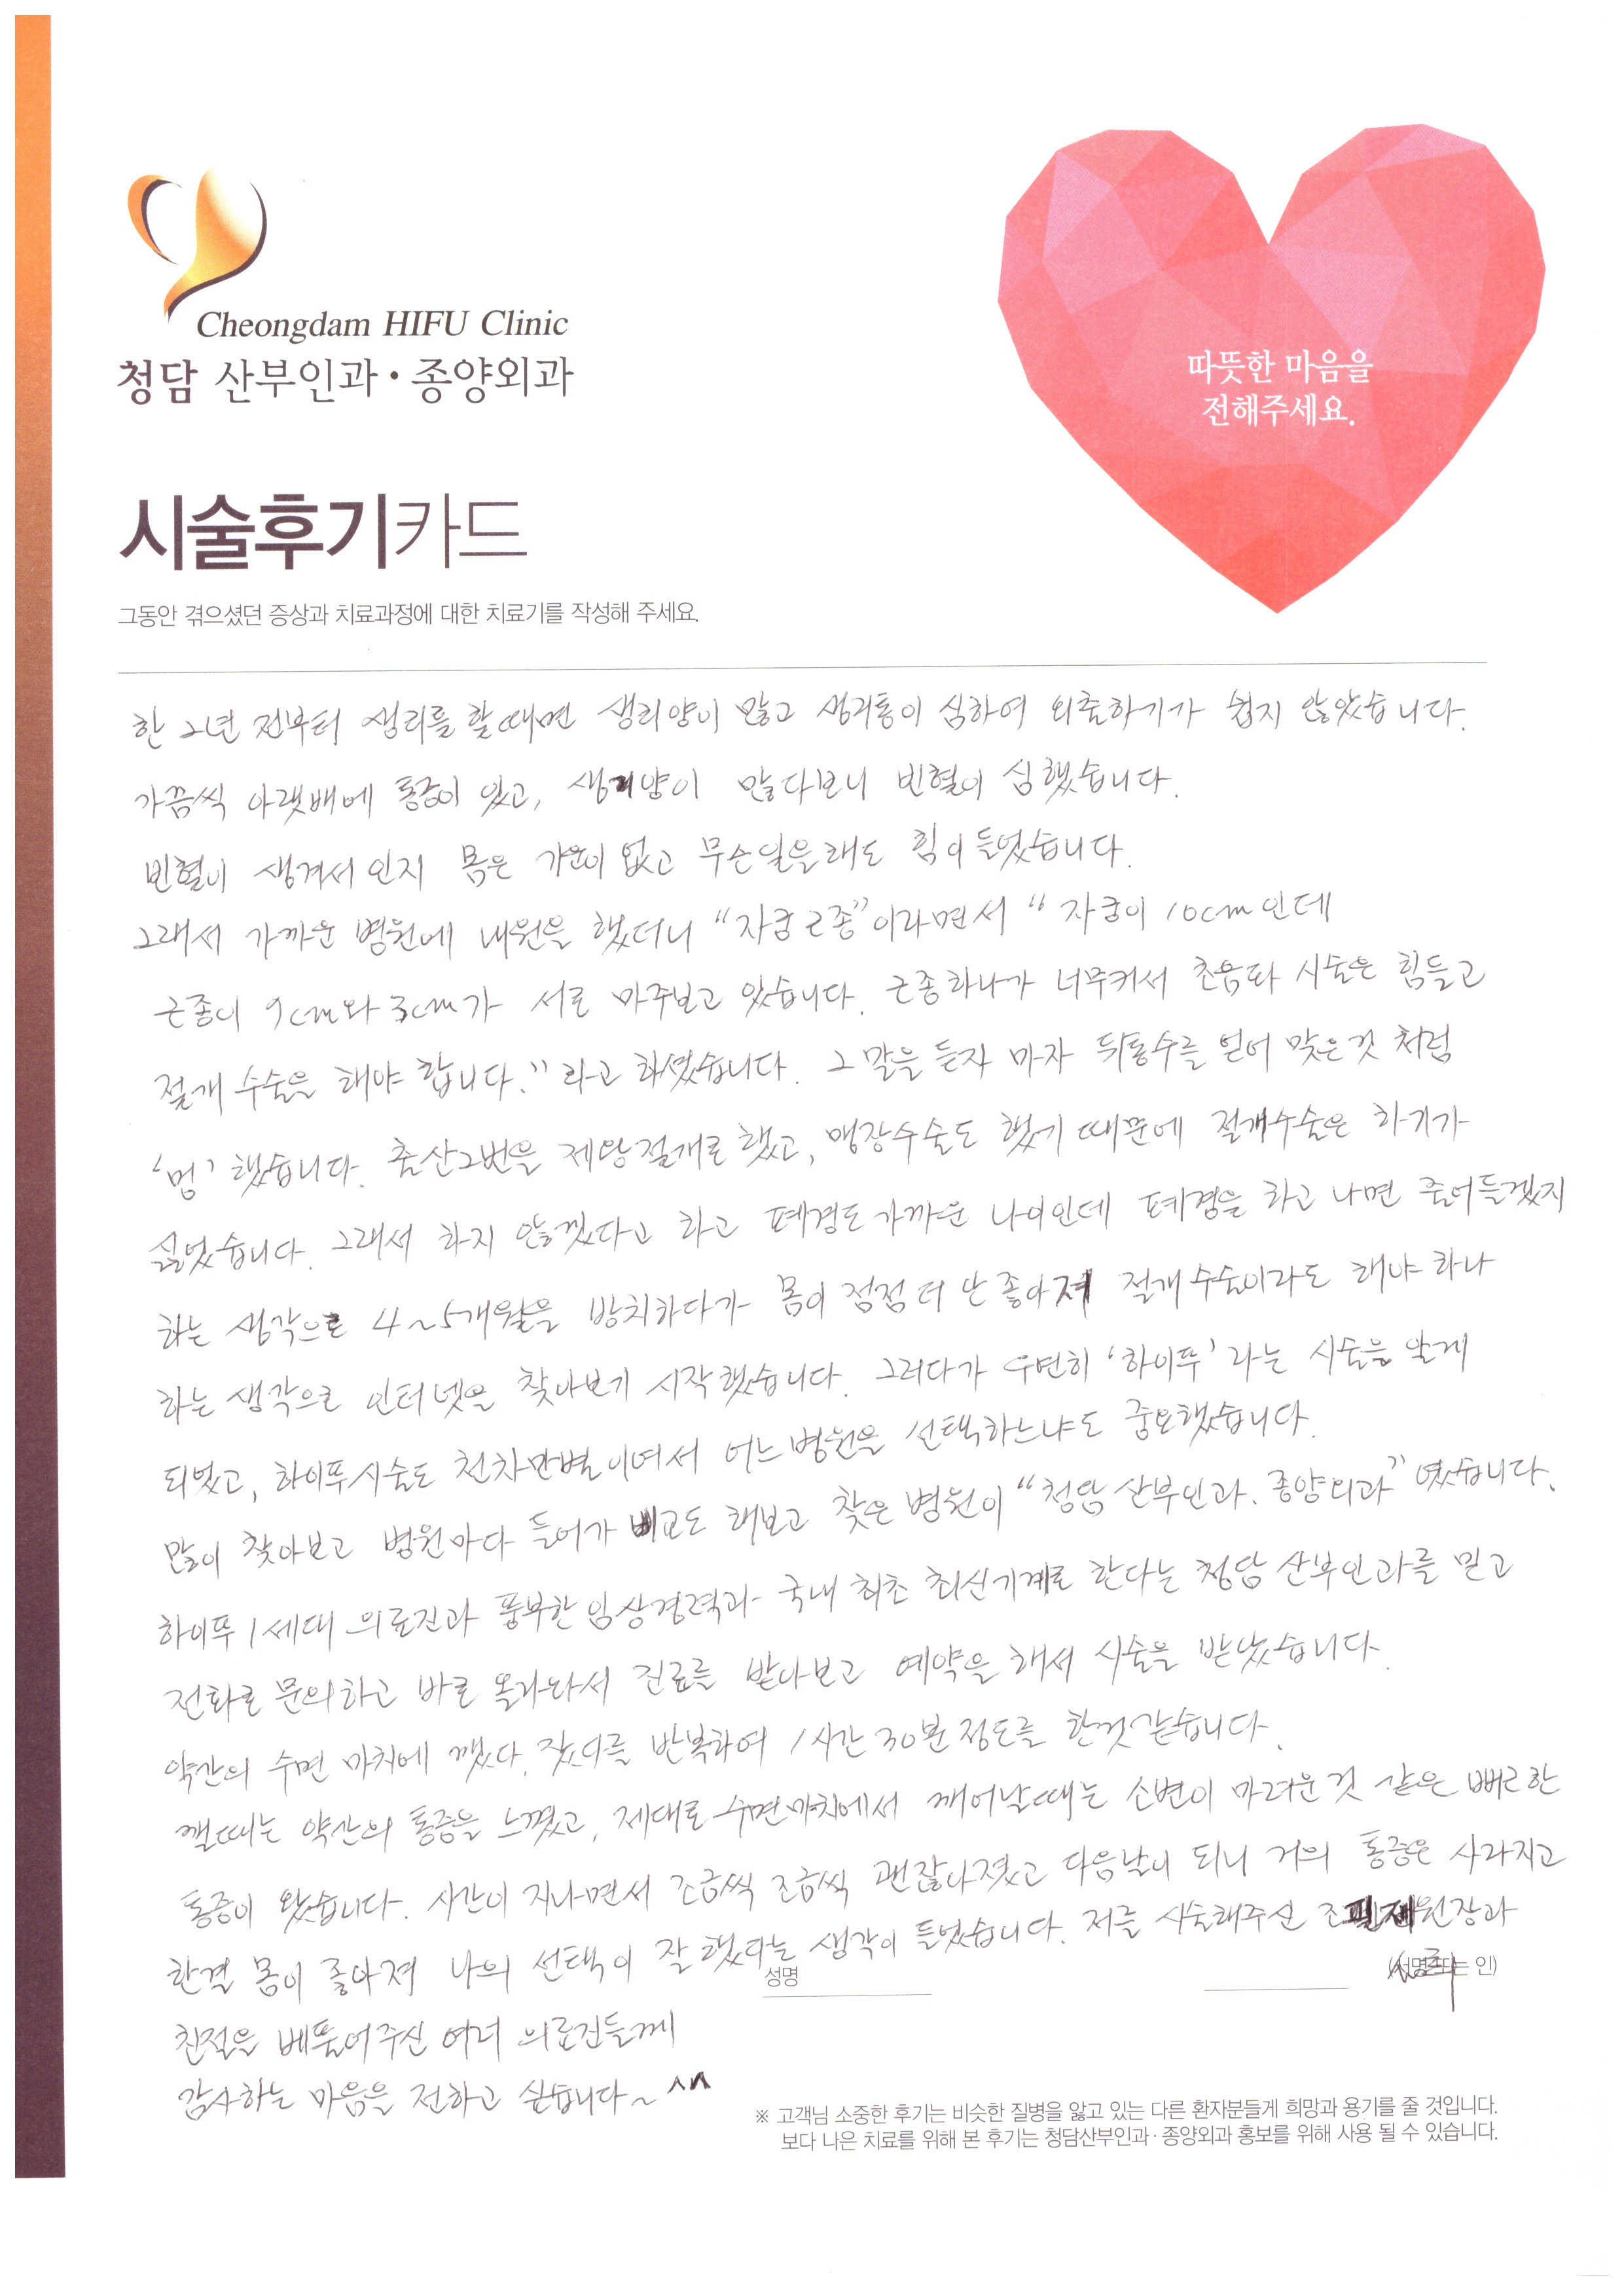 Cheongdam HIFU Clinic
청담 산부인과·종양외과
따뜻한 마음을
전해주세요.
시술후기카드
그동안 겪으셨던 증상과 치료과정에 대한 치료기를 작성해 주세요.
한 2년 전부터 생리를 할때면 생리양이 많고 생리통이 심하여 외출하기가 쉽지 않았습니다.
가끔씩 아랫배에 통증이 있고, 생리양이 많다보니 빈혈이 심했습니다.
빈혈이 생겨서 인지 몸은 기운이 없고 무슨일을해도 힘이 들었습니다.
그래서 가까운 병원에 내원을 했더니 "자궁근종"이라면서 "자궁이 10cm인데
근종이 9cm와 3cm가 서로 마주보고 있습니다. 근종하나가 너무커서 초음파 시술은 힘들고
절개 수술을 해야 합니다."라고 하셨습니다. 그 말을 듣자 마자 뒤통수를 얻어 맞은것 처럼
'멍' 했습니다. 출산2번을 제왕절개로 했고, 맹장수술도 했기 때문에 절개수술은 하기가
싫었습니다. 그래서 하지 않겠다고 하고 폐경도 가까운 나이인데 폐경을 하고 나면 줄어들겠지
하는 생각으로 4~5개월을 방치하다가 몸이 점점 더 안 좋아져 절개수술이라도 해야 하나
하는 생각으로 인터넷을 찾아보기 시작했습니다. 그러다가 우연히 '하이푸' 라는 시술을 알게
되었고, 하이푸시술도 천차만별이여서 어느병원을 선택하느냐도 중요했습니다.
많이 찾아보고 병원마다 들어가 비교도 해보고 찾은 병원이 "청담 산부인과. 종양외과" 였습니다.
하이푸 1세대 의료진과 풍부한 임상경력과 국내 최초 최신기계로 한다는 청담 산부인과를 믿고
전화로 문의하고 바로 올라와서 진료를 받아보고 예약을 해서 시술을 받았습니다.
약간의 수면 마취에 깼다. 잤다를 반복하여 1시간 30분 정도를 한것 같습니다.
깰때는 약간의 통증을 느꼈고, 제대로 수면마취에서 깨어날때는 소변이 마려운것 같은 뻐근한
통증이 왔습니다. 시간이 지나면서 조금씩 조금씩 괜찮아졌고 다음날이 되니 거의 통증은 사라지고
한결 몸이 좋아져 나의 선택이 잘 했다는 생각이 들었습니다. 저를 시술해주신 조필제원장과
성명 (서명 또는 인)
친절을 베풀어주신 여러 의료진들께
감사하는 마음을 전하고 싶습니다~ ^^
※ 고객님 소중한 후기는 비슷한 질병을 앓고 있는 다른 환자분들게 희망과 용기를 줄 것입니다.
보다 나은 치료를 위해 본 후기는 청담산부인과·종양외과 홍보를 위해 사용 될 수 있습니다.